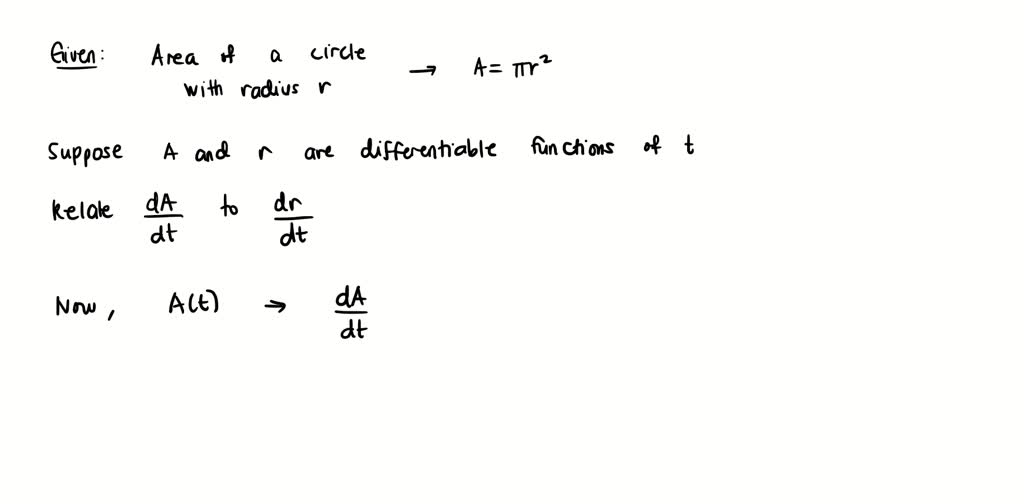 Given: Area of a circle → A = πr²
with radius r
Suppose A and r are differentiable functions of t
Relate dA/dt to dr/dt
Now, A(t) → dA/dt